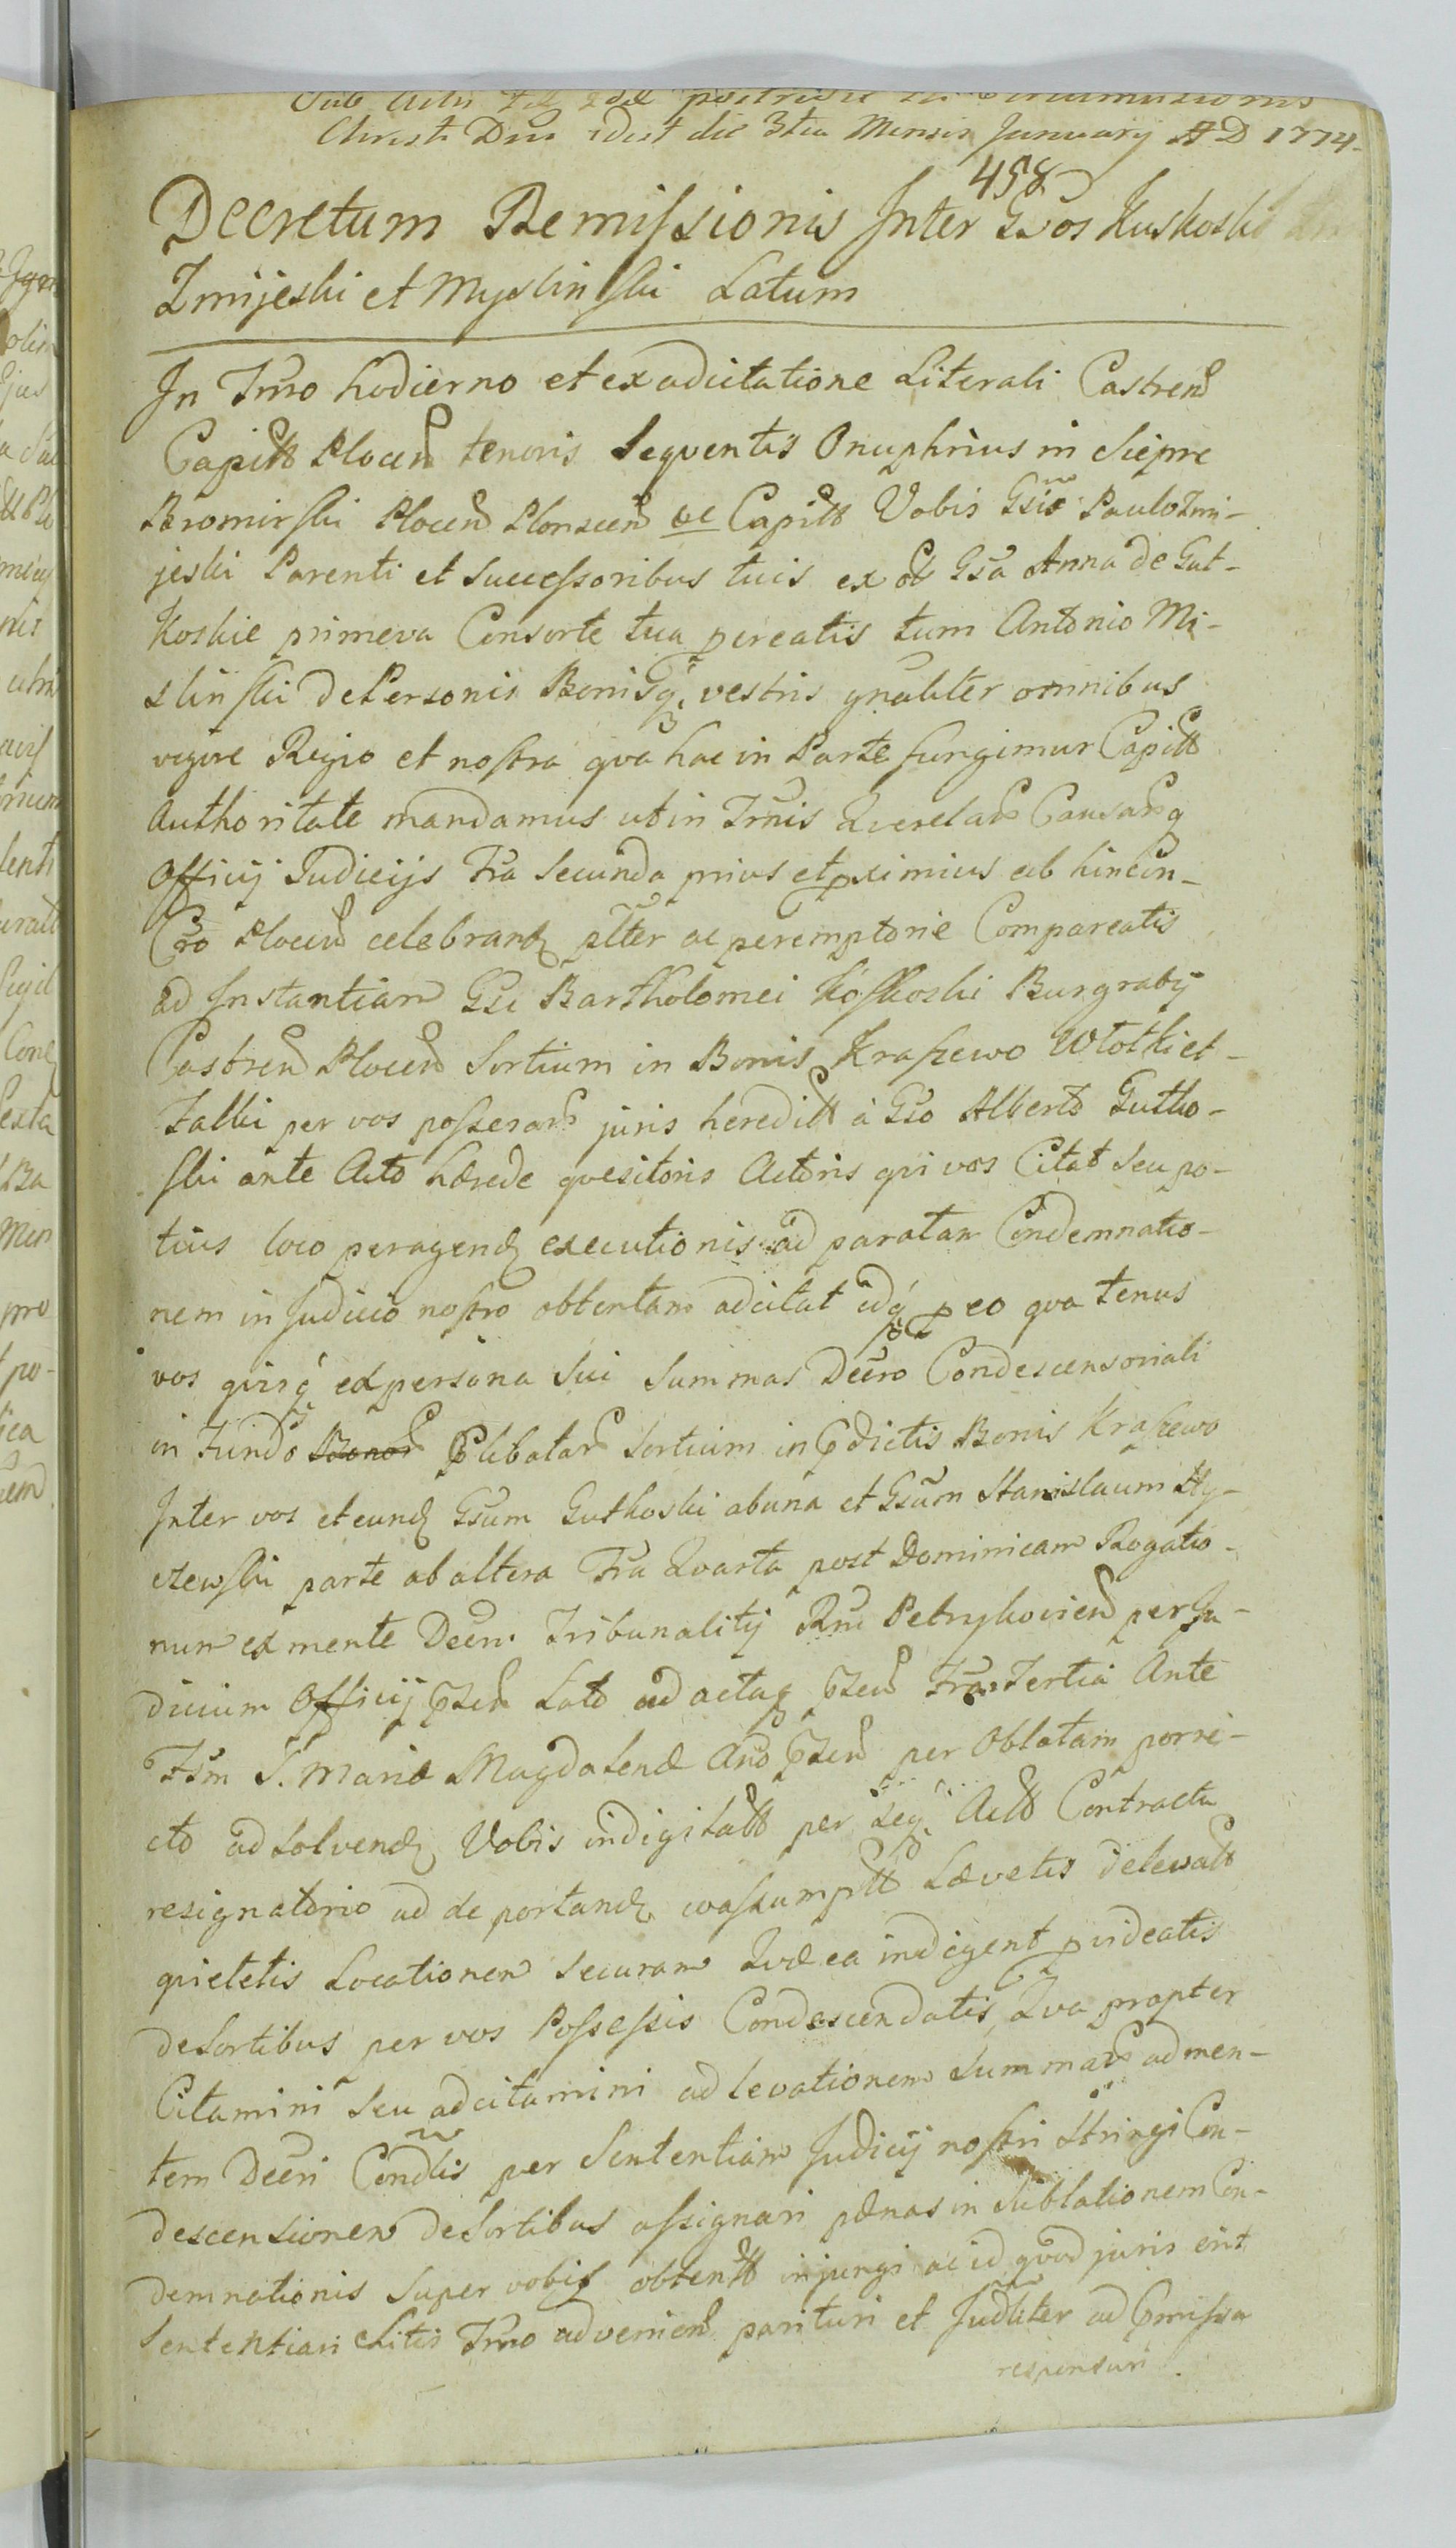 Christi Dni idest die 3tia Mensis Januarij A D 1774
458
Decretum Remiſsionis Inter Gsos Kuskoski
Zmijeski et Myslinſki Latum
In Tmo hodierno et ex adcitatione Literali Castren
Capitt Plocen tenoris Sequentis Onuphrius in Siepre
Bromirſki Plocen Plonscen &c Capitt Vobis Gsis Paulo Zmi-
jeski Parenti et Succeſsoribus tuis ex ol Gsa Anna de Gut-
koskie primeva Consorte tua pcreatis tum Antonio Mi-
slinſki de Personis Bonisq, vestris gnaliter omnibus
vigore Regio et noſtra qva hac in Parte fungimur Capitt
Authoritate mandamus ut in Tmis Querelar Causarq
Officij Judicijs Fra Secunda prius et pximius ab hinc in
Cro Plocen celebrand pltter ac peremptorie Compareatis
ad Instantiam Gsi Bartholomei Koſkoski Burgrabij
Castren Plocen Sortium in Bonis Kraſzewo Wtotki et
Falki per vos poſseſsar juris heredítt à Gso Alberto Gutko-
ſki ante Acto hærede qvesitoris Actoris qvi vos Citat Seu po-
tius loco peragend executionis ad paratam Condemnatio-
nem in Judicio noſtro obtentam adcitat idq peo qva tenus
vos qvisq ex persona Sui Summas Decro Condescensoriali
in Fundo Bonor plibatar Sortium in pdictis Bonis Kraſzewo
Inter vos et eund Gsum Gutkoski ab una et Gsum Stanislaum Ny-
czewſki parte ab altera Fra Qvarta post Dominicam Rogatio-
num ex mente Decri Tribunalitij Rni Petrykovien per Ju-
dicium Officij pzen Lato ad actaq pzen Fra Tertia Ante
Fsm S. Mariæ Magdalenæ Ano pzen per Oblatam porre-
cto ad Solvend Vobis indigitatt per Seq. Actt Contractu
resignatorio ad de portand coaſsumptt Lævetis delevatt
qvietetis Locationem Securam Qvæ ea indigent pvideatis
de Sortibus per vos Poſseſsis Condescendatis, Qva propter
Citamini Seu adcitamini ad levationem Summar ad men-
tem Decri Condlis per Sententiam Judicij noſtri Stringi Con-
descensionem de Sortibus aſsignari pænas in Sublationem Con-
demnationis Super vobis obtentt injungi ac id qvod juris erit
Sententiari Citis Tmo advenien parituri et Judltter ad pmiſsa
responsuri.